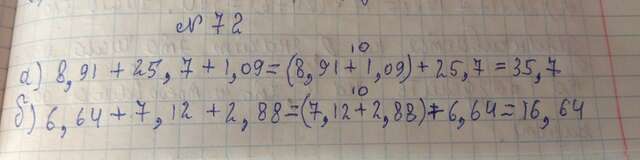 № 72
10
а) 8,91 + 25,7 + 1,09 = (8,91 + 1,09) + 25,7 = 35,7
10
б) 6,64 + 7,12 + 2,88 = (7,12 + 2,88) + 6,64 = 16,64